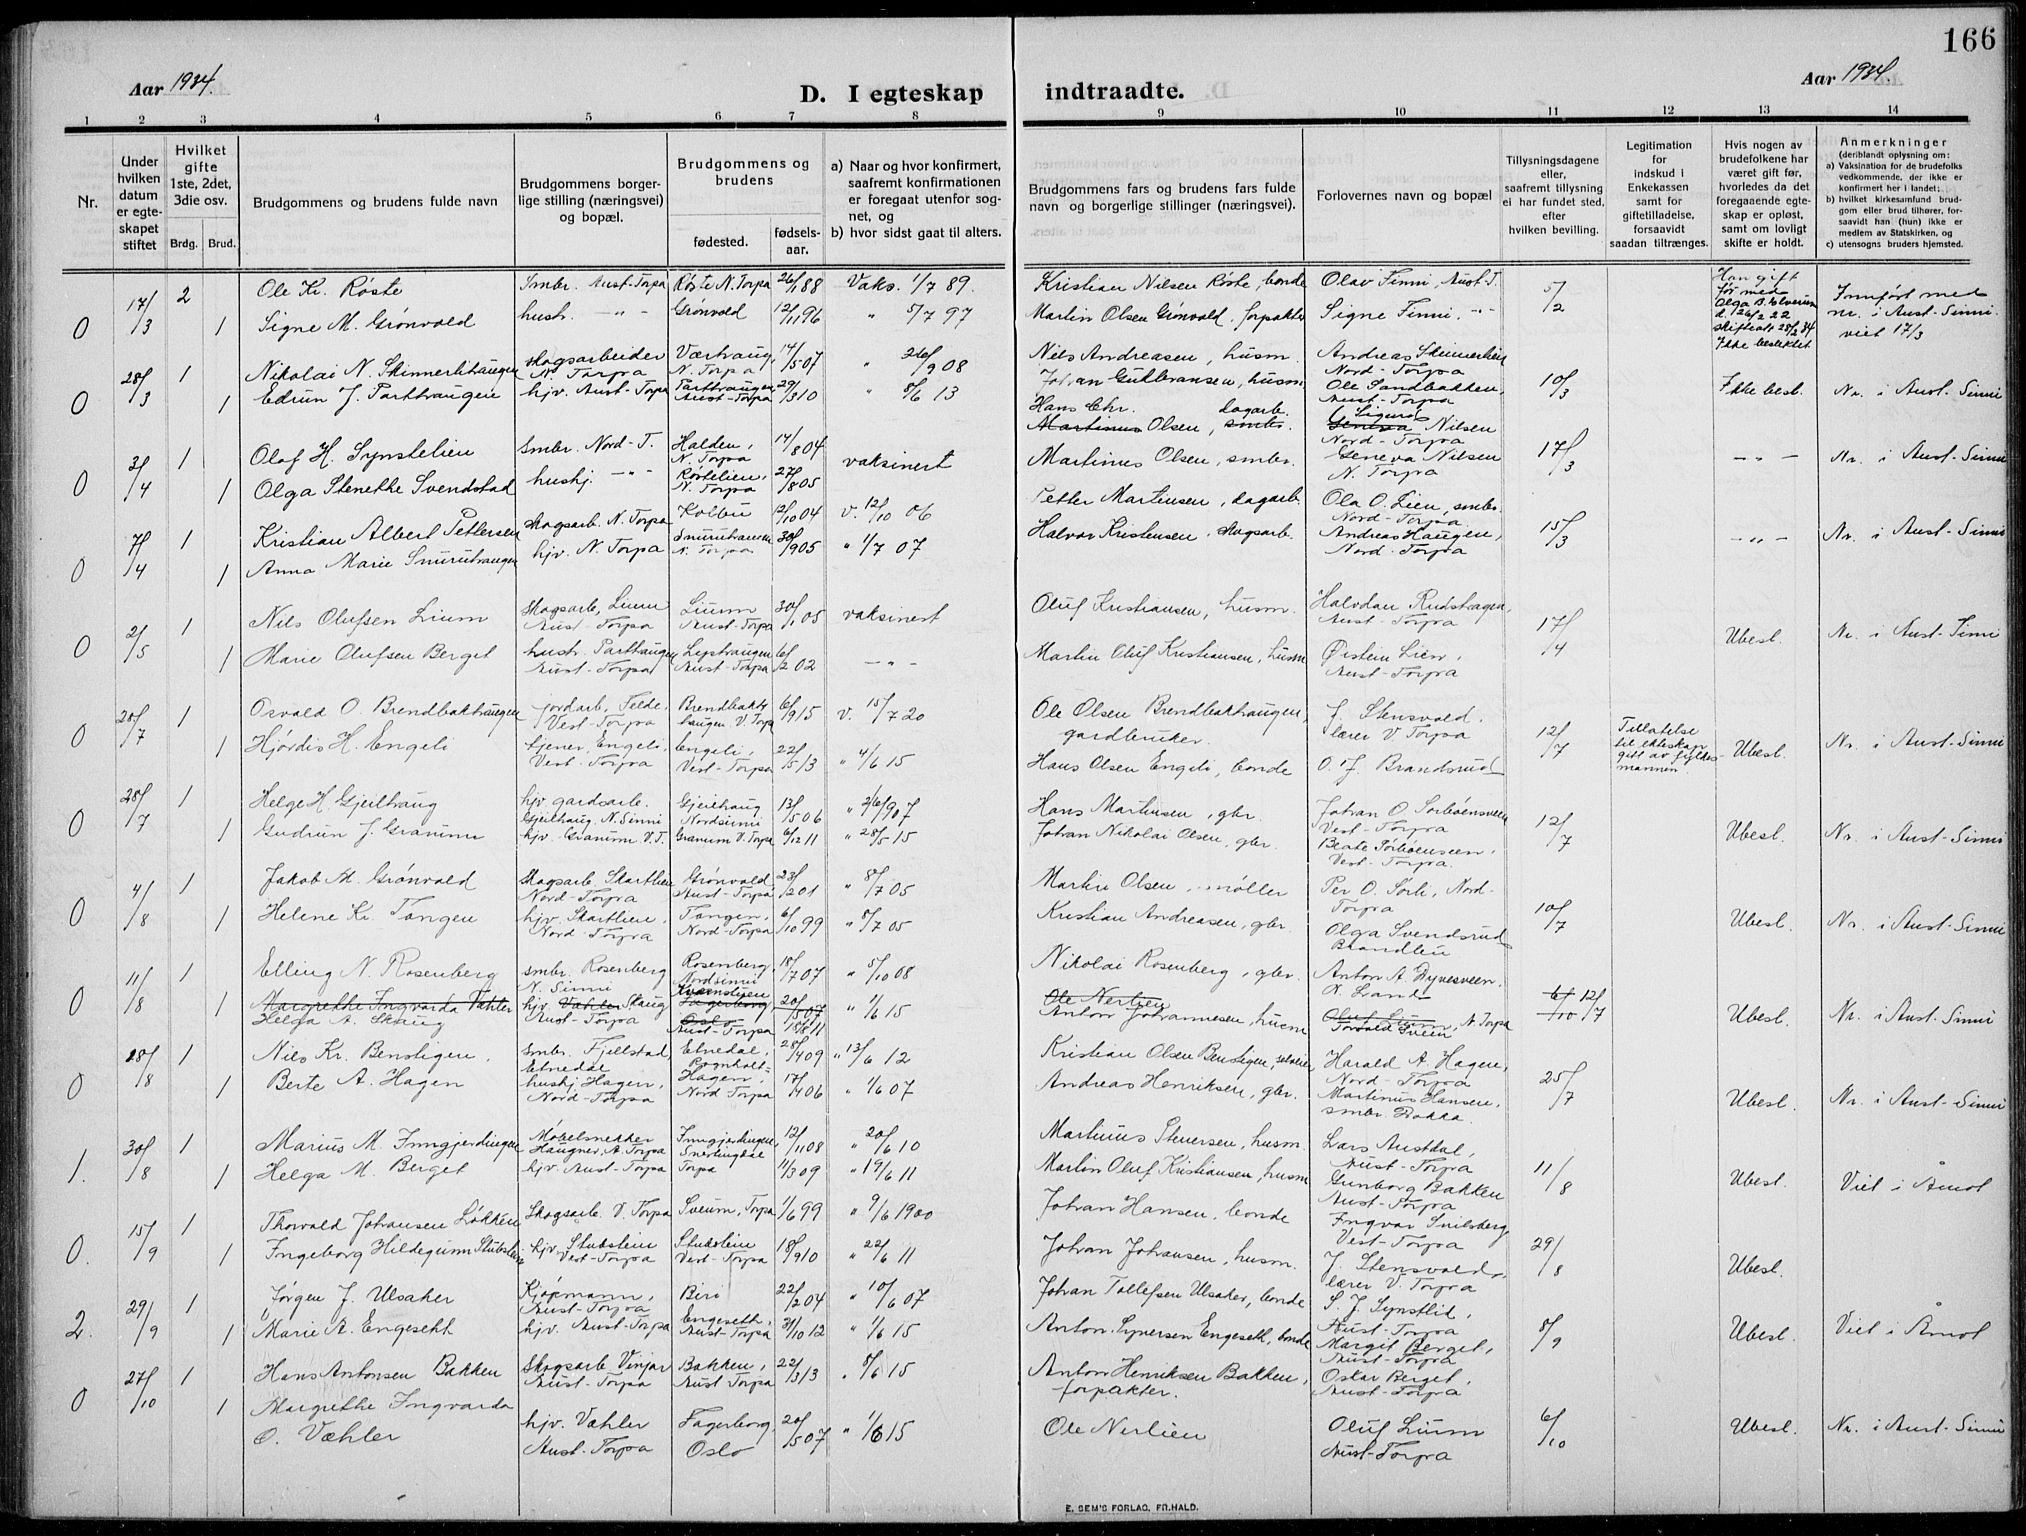 166
Aar 1934.
D. I egteskap indtraadte.
Aar 1934.
1 2 3 4 5 6 7 8 9 10 11 12 13 14
Nr.
Under hvilken datum er egteskapet stiftet
Hvilket gifte 1ste, 2det, 3die osv.
Brdg. Brud.
Brudgommens og brudens fulde navn
Brudgommens borgerlige stilling (næringsvei) og bopæl.
Brudgommens og brudens
fødested.
fødselsaar.
a) Naar og hvor konfirmert, saafremt konfirmationen er foregaat utenfor sognet, og
b) hvor sidst gaat til alters.
Brudgommens fars og brudens fars fulde navn og borgerlige stillinger (næringsvei).
Forlovernes navn og bopæl
Tillysningsdagene eller, saafremt tillysning ei har fundet sted, efter hvilken bevilling.
Legitimation for indskud i Enkekassen samt for giftetilladelse, forsaavidt saadan tiltrænges.
Hvis nogen av brudefolkene har været gift før, hvorledes da det foregaaende egteskap er opløst, samt om lovligt skifte er holdt.
Anmerkninger (deriblandt oplysning om: a) Vaksination for de brudefolks vedkommende, der ikke er konfirmert her i landet; b) hvilket kirkesamfund brudgom eller brud tilhører, forsaavidt han (hun) ikke er medlem av Statskirken, og c) utensogns bruders hjemsted.
0 17/3 2 Ole Kr. Røste Smbr. Aust-Torpa Røste N. Torpa 26/1 88 Vaks. 1/7 89. Kristian Nilsen Røste, bonde Olav Finni, Aust-T. 5/2 Han gift før med Olga B. Elverum d. 26/2 22 skifteatt. 28/2 34 Ikke beslektet Innført med nr. i Aust-Sinni. viet 17/3
1 Signe M. Grønvold hustr. -"- Grønvold 12/11 96 " 5/7 97 Martin Olsen Grønvold, forpakter Signe Finni, -"-
0 28/3 1 Nikolai N. Skinnerlihaugen skogsarbeider N. Torpa Værhaug, N. Torpa 14/5 07 " 26/9 08 Nils Andreasen, husm. Andreas Skinnerlien Nord-Torpa 10/3 Ikke besl. Nr. i Aust-Sinni
1 Edrun J. Parthaugen hjv. Aust-Torpa Parthaugen Aust-Torpa 29/3 10 " 8/6 13 Johan Gulbransen, husm. Ole Sandbakken, Aust-Torpa
0 3/4 1 Olaf H. Synstelien Smbr. Nord-T. Halden, N. Torpa 14/8 04 vaksinert Hans Chr. Martinus Olsen, dagarb. smbr. Sigurd Geneva Nilsen Nord-Torpa 17/3 -"- Nr. i Aust-Sinni
1 Olga Stenethe Svendstad hushj. -"- Røstelien, N. Torpa 27/8 05 Martinus Olsen, smbr. Geneva Nilsen N. Torpa
0 7/4 1 Kristian Albert Pettersen Skogsarb. N. Torpa Kolbu 12/10 04 v. 12/10 06 Petter Martinsen, dagarb. Ola O. Lien, smbr. Nord-Torpa 15/3 -"- Nr. i Aust-Sinni
1 Anna Marie Snuruhaugen hjv. N. Torpa Snuruhaugen N. Torpa 30/9 05 " 1/7 07 Halvor Kristensen, skogsarb. Andreas Haugen, Nord-Torpa
0 2/5 1 Nils Olufsen Lium Skogsarb, Lium Aust-Torpa Lium Aust-Torpa 30/1 05 vaksinert Oluf Kristiansen, husm. Halvdan Rudshagen, Aust-Torpa 17/4 Ubesl. Nr. i Aust-Sinni
1 Marie Olufsen Berget hustr. Parthaugen Aust-Torpa Aust-Torpa 6/2 02 -"- Martin Oluf Kristiansen, husm Øistein Lien, Aust-Torpa
0 28/7 1 Osvald O. Brendbakhaugen jordarb. Felde, Vest-Torpa Brendbakkhaugen V. Torpa 6/9 15 v. 15/7 20 Ole Olsen Brendbakhaugen, gardbruker. J. Stensvold, lærer V. Torpa 12/7 Tillatelse til ekteskap gitt av fylkesmannen Ubesl. Nr. i Aust-Sinni
1 Hjørdis H. Engeli tjener, Engeli, Vest-Torpa Engeli, Vest-Torpa 22/5 13 " 4/6 15 Hans Olsen Engeli, bonde O. J. Brandsrud
0 28/7 1 Helge H. Gjeilhaug hjv. gardsarb. Gjeilhaug, N. Sinni Gjeilhaug Nordsinni 13/5 06 " 26/9 07 Hans Martinsen, gbr. Johan O. Sorbøensveen Vest-Torpa 12/7 Ubesl. Nr. i Aust-Sinni
1 Gudrun J. Granum hjv. Granum V. T. Granum V. Torpa 6/12 11 " 28/5 15 Johan Nikolai Olsen, gbr. Beate Sørbøenseen, Vest-Torpa.
0 4/8 1 Jakob M. Grønvold Skogsarb. Skartlien Nord-Torpa Grønvold Aust-Torpa 23/2 01 " 8/7 05 Martin Olsen, møller Per O. Sørli, Nord-Torpa 10/7 Ubesl. Nr. i Aust-Sinni
1 Helene Kr. Tangen hjv. Skartlien, Nord-Torpa Tangen, Nord-Torpa 6/10 99 " 8/7 05 Kristian Andreasen, gbr. Olga Svendsrud Brandbu
0 11/8 1 Elling N. Rosenberg smbr. Rosenberg N. Sinni Rosenberg, Nordsinni 18/7 07 " 5/10 08 Nikolai Rosenberg, gbr. Anton A. Dyvesveen, N. Land 6/10 12/7 Ubesl. Nr. i Aust-Sinni
1 Margrethe Ingvarda Vahler Helga A. Skaug hjv. Vahler Skaug Aust-Torpa Fagerborg Oslo Aust-Torpa 20/5 07 15/8 11 " 1/6 15 Ole Nerlien Anton Johannesen, husm Oluf Lium, N. Torpa Torvald Sveen
0 18/8 1 Nils Kr. Benstigen. Smbr. Fjellstad, Etnedal Etnedal, 28/4 09 " 13/6 12 Kristian Olsen Benstigen, selveier Harald A. Hagen, Nord-Torpa 25/7 Ubesl. Nr. i Aust-Sinni
1 Berte A. Hagen hushj Hagen, Nord-Torpa Hagen, Nord Torpa 17/4 06 " 1/6 07 Andreas Henriksen, gbr. Martinus Hansen, smbr. Bakka.
1. 30/8 1 Marius M. Inngjerdingen Møbelsnekker Haugner, A. Torpa Inngjerdingen, Snertingdal 12/11 08 " 20/6 10 Martinus Stenersen, husm. Lars Austdal, Aust-Torpa 11/8 Ubesl. Viet i Åmot
1 Helga M. Berget hjv. Aust-Torpa Torpa 11/3 09 " 19/6 11 Martin Oluf Kristiansen, husm Gunborg Bakken Aust-Torpa
0. 15/9 1 Thorvald Johansen Løkken Skogsarb. V. Torpa Sveum, Torpa 1/6 99 " 9/6 1900 Johan Hansen, bonde Ingvar Snilsberg, Vest-Torpa 29/8 Ubesl.
1 Ingeborg Hildegunn Stubslien hjv. Stubslien Vest-Torpa Stubslien Vest-Torpa 18/9 10 " 22/6 11 Johan Johansen, husm. J. Stensvold, lærer V. Torpa
2. 29/9 1 Jørgen J. Ulsaker Kjøpmann, Aust-Torpa Biri 22/2 04 " 10/6 07 Johan Tollefsen Ulsaker, bonde S. J. Synstlid, Aust-Torpa 8/9 Ubesl. Viet i Åmot
1 Marie A. Engeseth hjv. Aust-Torpa Engeseth, Aust-Torpa 31/10 12 " 1/6 15 Anton Synersen Engeseth, bonde Margit Berget, Aust-Torpa
0 27/10 1 Hans Antonsen Bakken Skogsarb. Vinjar Aust-Torpa Bakken, Aust Torpa 22/3 13 " 8/6 15 Anton Henriksen Bakken, forpakter. Oskar Berget, Aust-Torpa 6/10 Ubesl. Nr. i Aust-Sinni
1 Margrethe Ingvarda O. Væhler hjv. Væhler Aust-Torpa Fagerborg, Oslo 20/5 07 " 1/6 15 Ole Nerlien Oluf Lium Aust-Torpa
E. SEM'S FORLAG, FR.HALD.